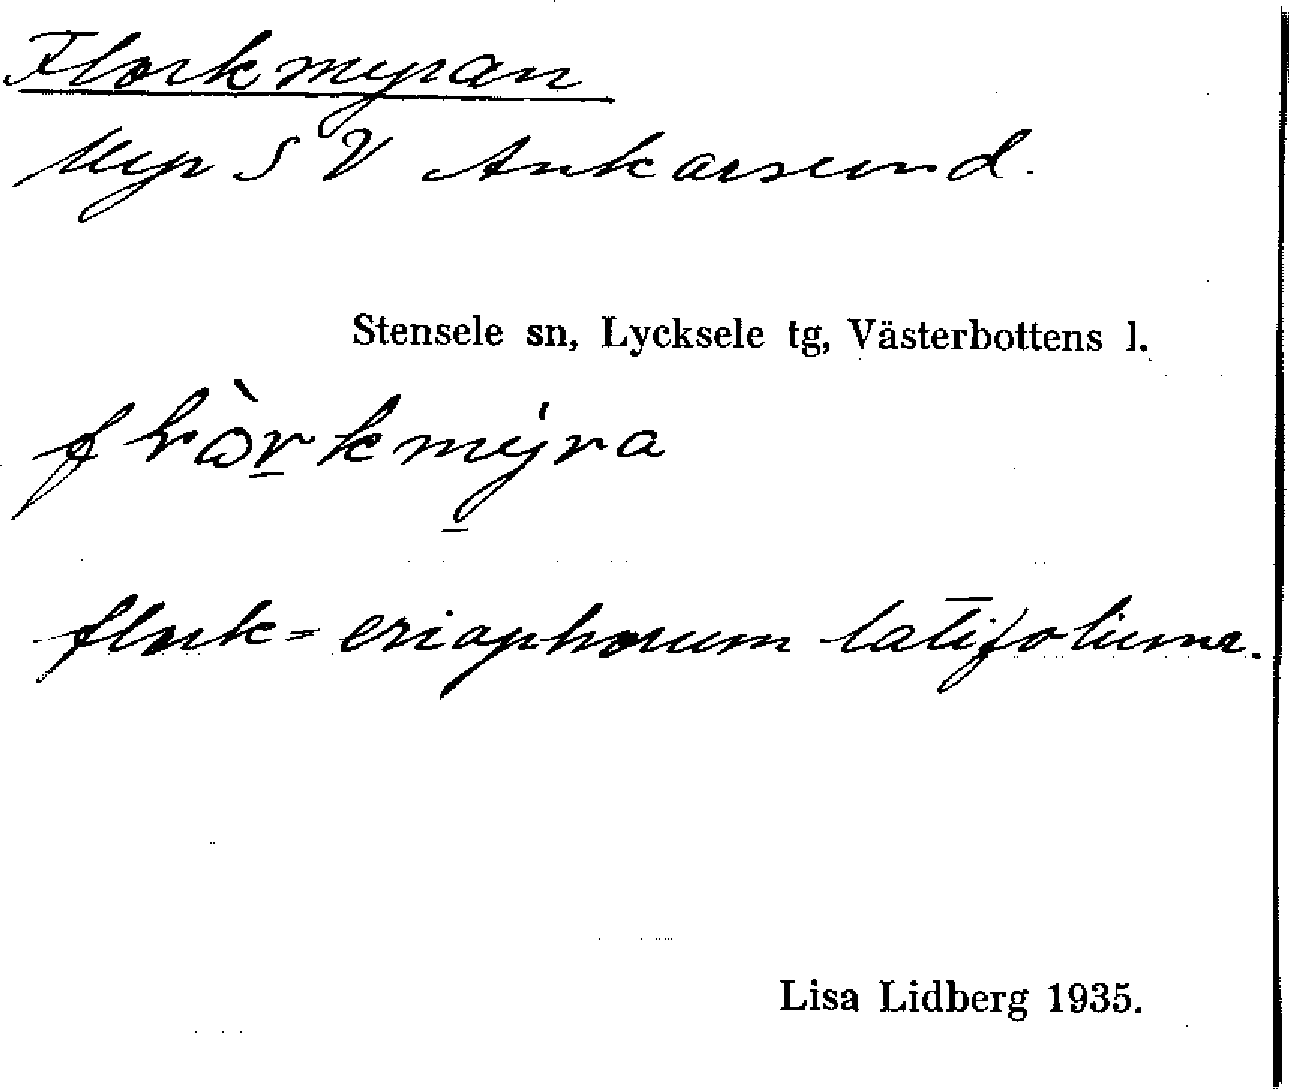 Florkmyran
Myr SV Ankarsund.
Stensele sn, Lycksele tg, Västerbottens l.
flork = eriophorum latifolium.
Lisa Lidberg 1935.